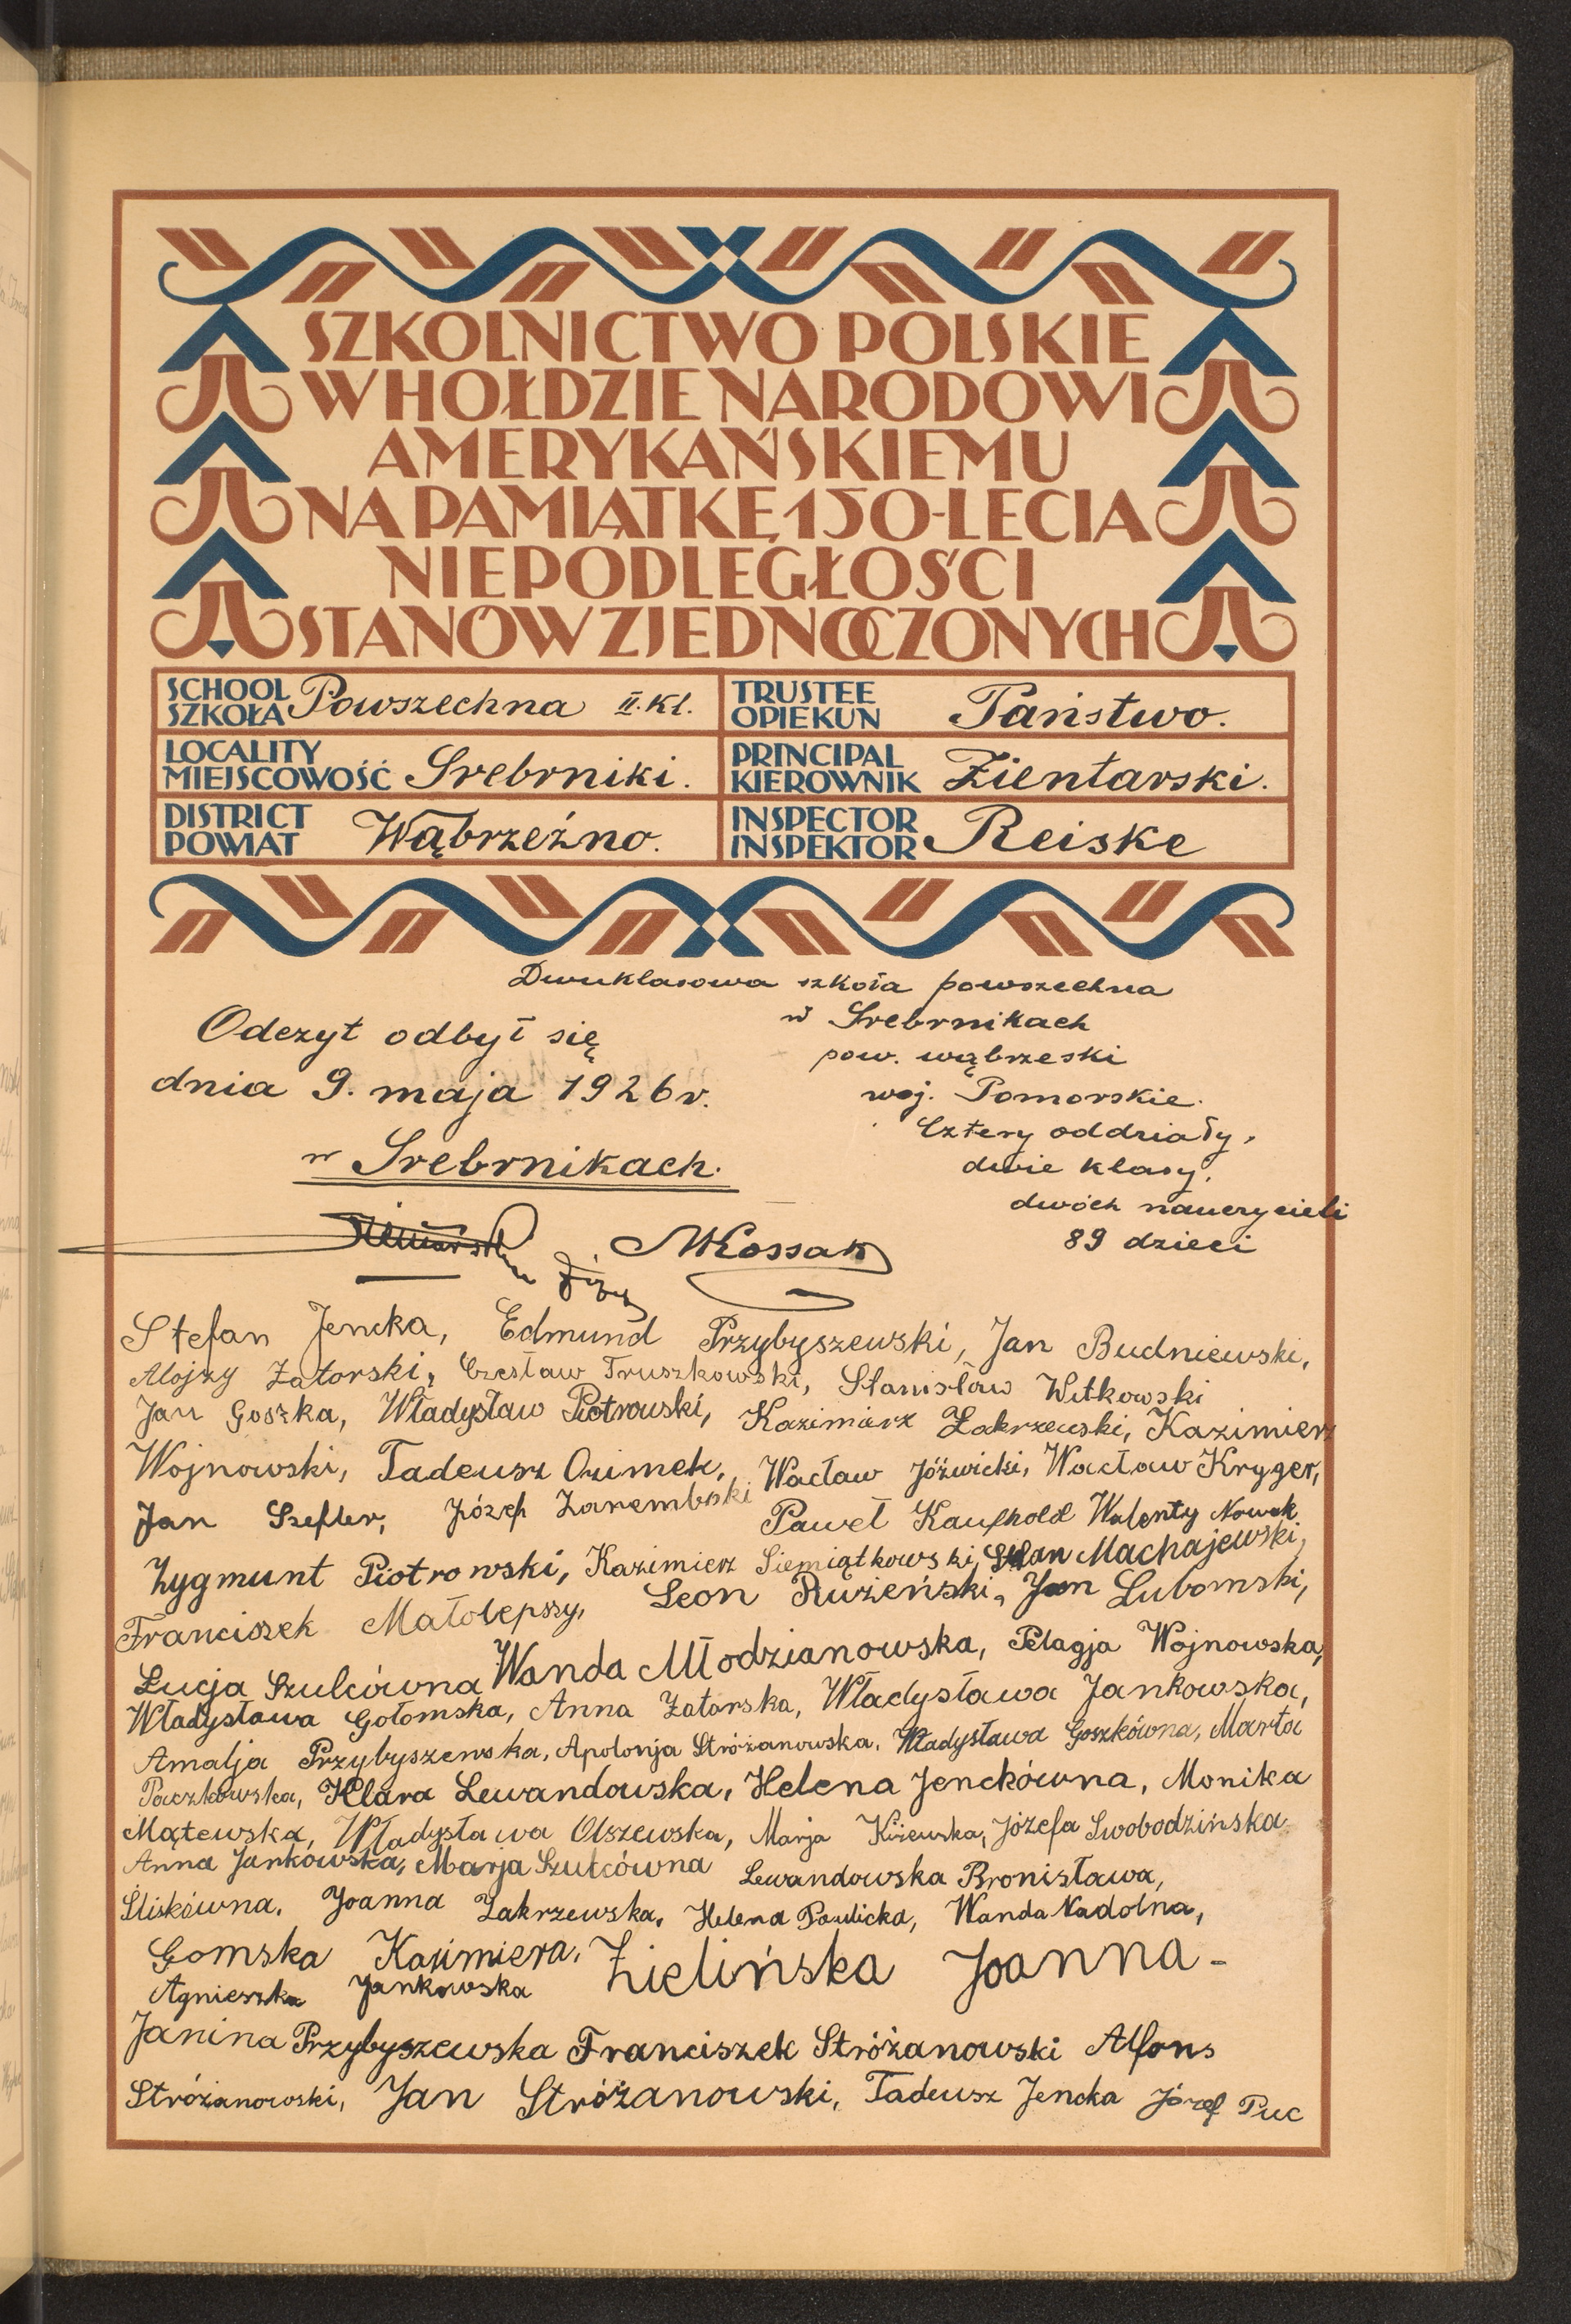 SZKOLNICTWO POLSKIE
W HOŁDZIE NARODOWI
AMERYKAŃSKIEMU
NA PAMIĄTKĘ 150-LECIA
NIEPODLEGŁOŚCI
STANÓW ZJEDNOCZONYCH
SCHOOL
SZKOŁA Powszechna II. Kl.
TRUSTEE
OPIEKUN Państwo.
LOCALITY
MIEJSCOWOŚĆ Srebrniki.
PRINCIPAL
KIEROWNIK Zientarski.
DISTRICT
POWIAT Wąbrzeźno.
INSPECTOR
INSPEKTOR Reiske
Dwuklasowa szkoła powszechna
w Srebrnikach
pow. wąbrzeski
woj. Pomorskie.
Cztery oddziały,
dwie klasy,
dwóch nauczycieli
89 dzieci
Odczyt odbył się
dnia 9. maja 1926 r.
w Srebrnikach.
MKossak
Stefan Jencka, Edmund Przybyszewski, Jan Budniewski,
Alojzy Zatorski, Czesław Truszkowski, Stanisław Witkowski
Jan Goszka, Władysław Piotrowski, Kazimierz Zakrzewski, Kazimierz
Wojnowski, Tadeusz Wacław Jóźwicki, Wacław Kryger,
Jan Szefler, Józef Zarembski Paweł Kaufhold Walenty Nowak
Zygmunt Piotrowski, Kazimierz Siemiątkowski, Machajewski,
Franciszek Małolepszy, Leon Rużeński, Jan Lubomski,
Łucja Szulcówna Wanda Młodzianowska, Pelagja Wojnowska,
Władysława Gołomska, Anna Zatorska, Władysława Jankowska,
Amalja Przybyszewska, Apolonja Stróżanowska, Władysława Goszkówna, Marta
Paczkowska, Klara Lewandowska, Helena Jenckówna, Monika
Mątewska, Władysława Olszewska, Marja Józefa Swobodzińska
Anna Jankowska, Marja Szulcówna Lewandowska Bronisława,
Śliskówna, Joanna Zakrzewska, Helena Pawlicka, Wanda Nadolna,
Gomska Kazimiera, Zielińska Joanna-
Agnieszka Jankowska
Janina Przybyszewska Franciszek Stróżanowski Alfons
Stróżanowski, Jan Stróżanowski, Tadeusz Jencka Józef Puc